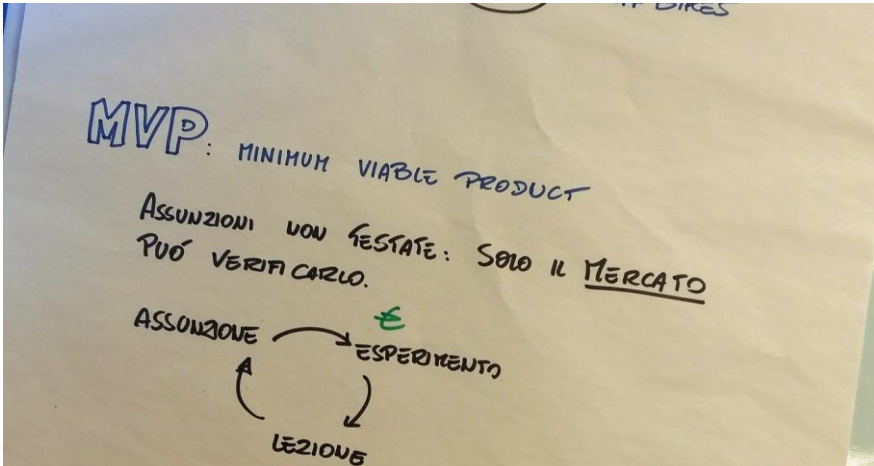 MVP: MINIMUM VIABLE PRODUCT
ASSUNZIONI NON TESTATE: SOLO IL MERCATO
PUÓ VERIFICARLO.
€
ASSUNZIONE
ESPERIMENTO
LEZIONE